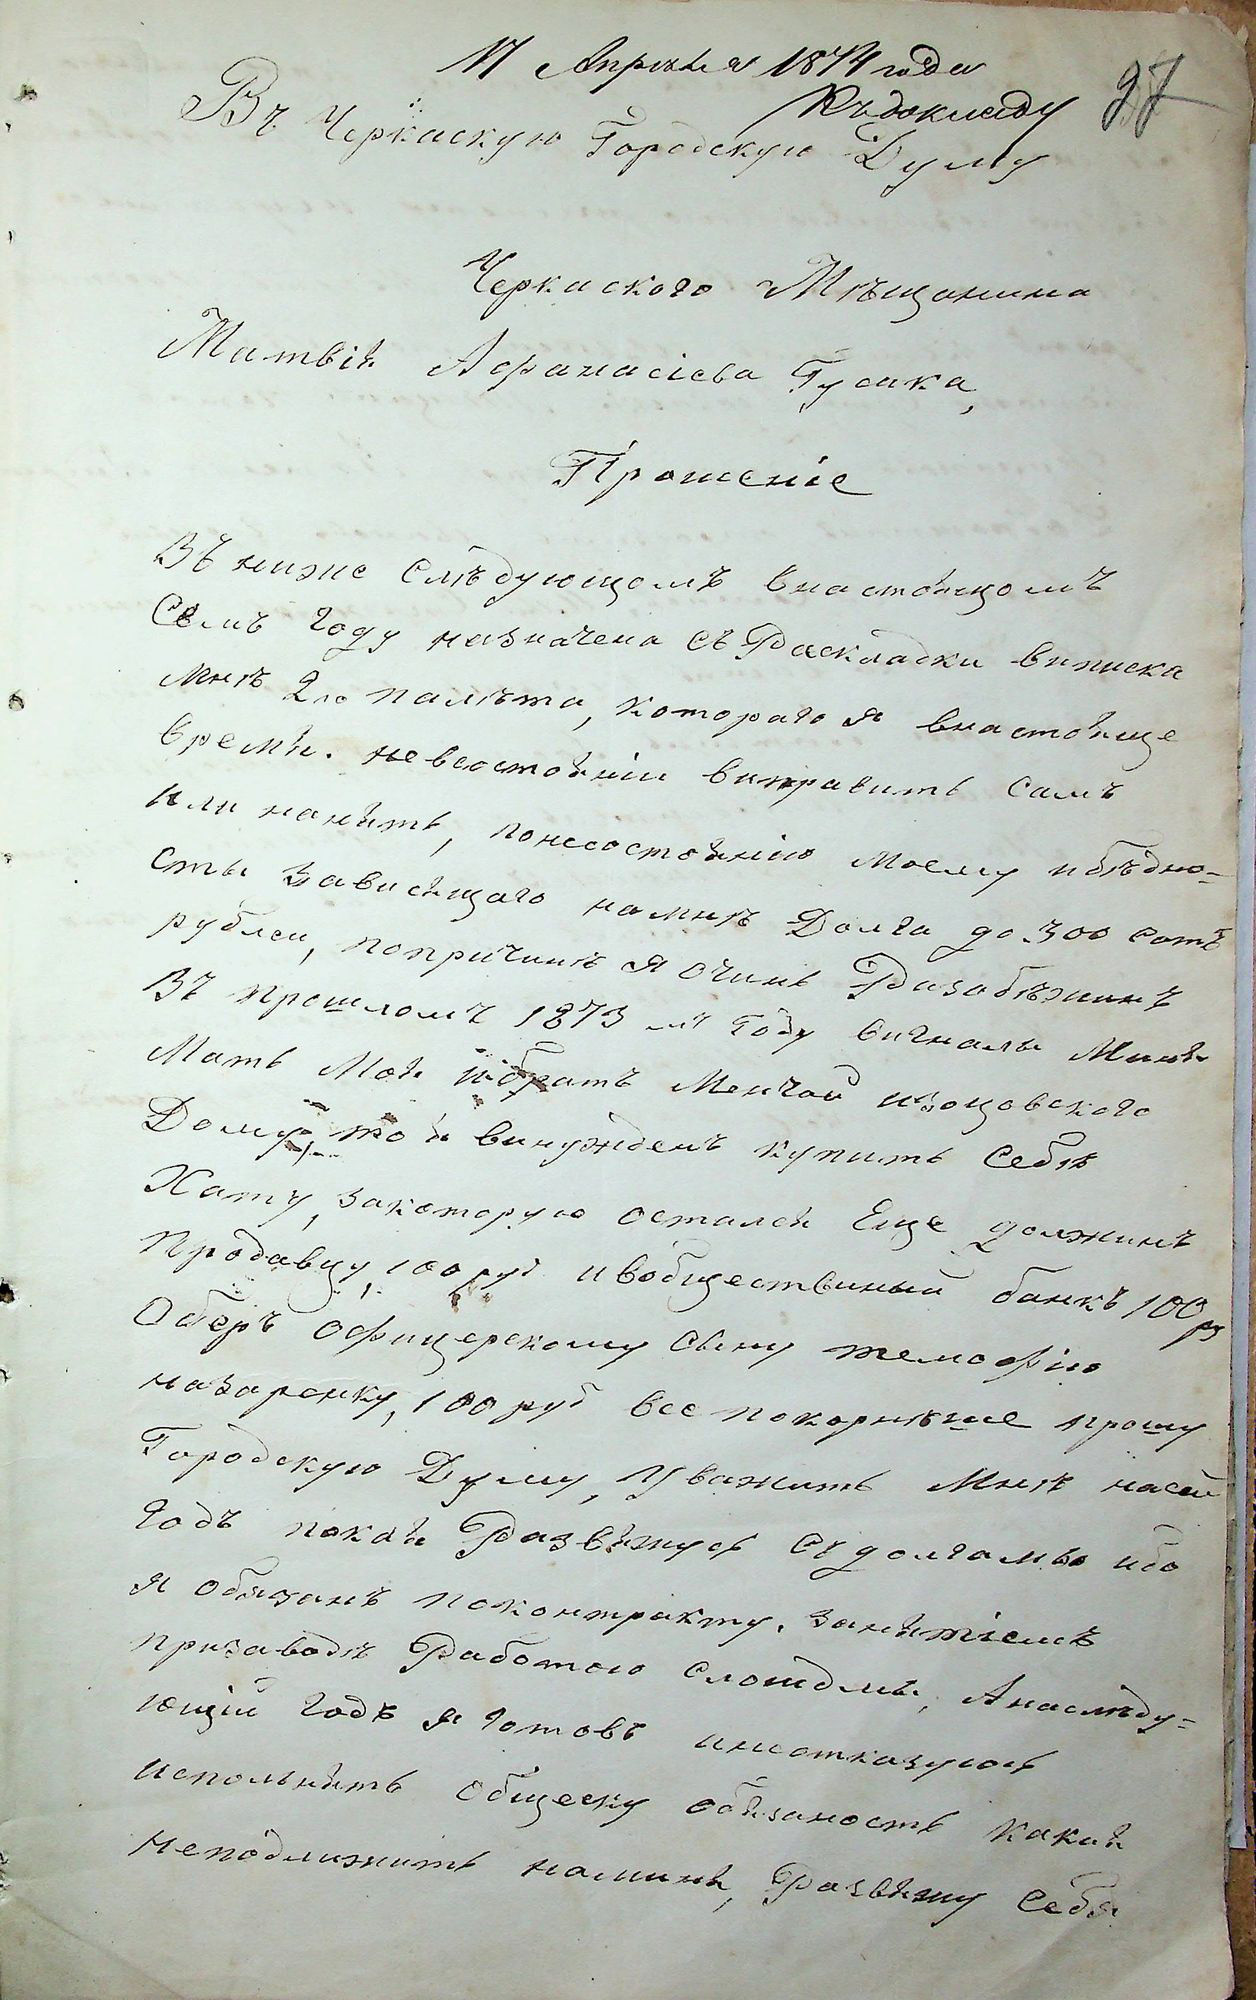 17 Апрѣля 1874 года
Къ докладу
27
Въ Черкаскую Городскую Думу
Черкаского Мѣщанина
Матвія Афанасіева Гусака,
Прошеніе
Въ ниже слѣдующомъ внастоящомъ
Семъ году назначена съ Раскладки виписка
мнѣ 2го палѣта, котораго я внастояще
время. невсостоянии виправить самъ
или нанять, понесостоянію моему ибѣдно-
сты зависящаго намнѣ Долга до 300 сотъ
рублей, попричинѣ я очинь Разабѣжинъ
Въ прошломъ 1873 мъ году вигналы миня
мать моя ибратъ меншой изоцовского
Дому, то я винужденъ купить себѣ
Хату, закоторую остался Еще должинъ
продавцу, 100 руб ивобщественый банкъ 100 р
Оберъ офицерскому сыну темофію
назаренку, 100 руб все покорнѣше прошу
Городскую Думу, Уважить мнѣ насей
годъ покая Развяжусь съ долгамы ибо
я обязанъ поконтракту. занятіемъ
призаводѣ Работою слошадмы, Анаслѣду-
ющій годъ я готовъ инеотказуюсь
исполнять общеску обязаность какая
неподлижить намина, Развяжу себя